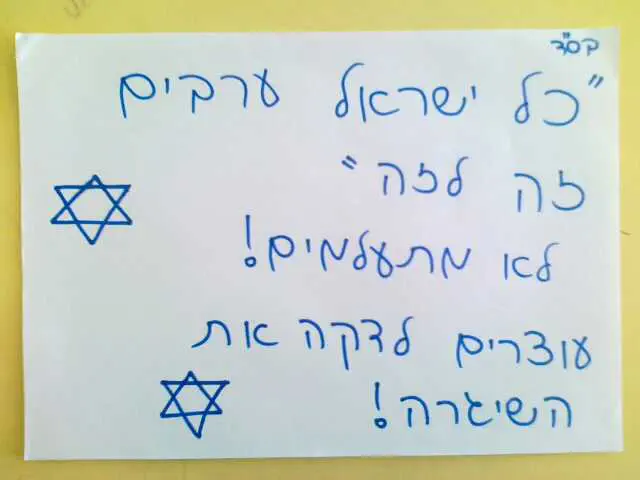 בס"ד
"כל ישראל ערבים
זה לזה"
לא מתעלמים!
עוצרים לדקה את
השיגרה!